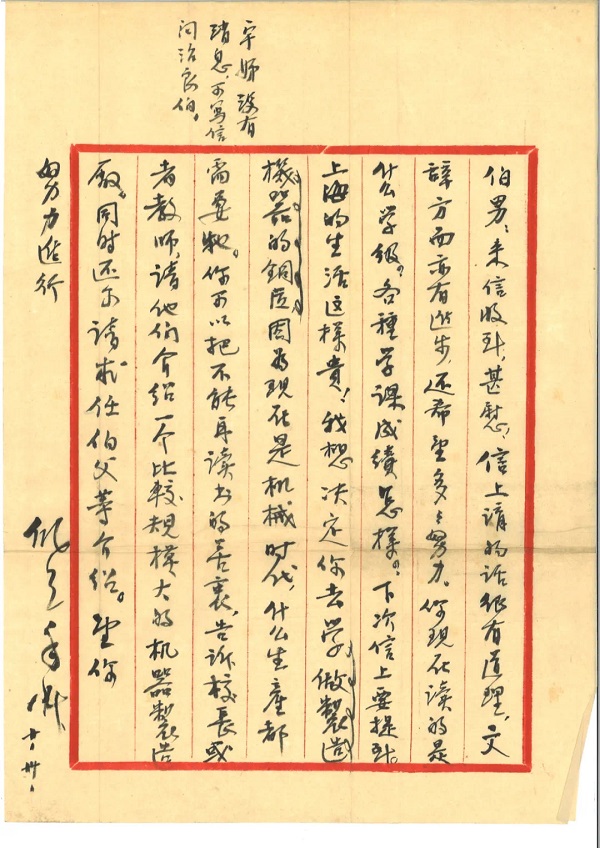 伯男：来信收到，甚慰！信上讲的话很有道理，文
辞方面亦有进步，还希望多多努力。你现在读的是
什么学级？各种学课成绩怎样？下次信上要提到。
上海的生活这样贵！我想决定你去学做製造
機器的銅匠，因为现在是机械时代，什么生産都
需要牠。你可以把不能再读书的苦衷，告诉校长或
者教师，请他们介绍一个比較规模大的机器製造
厰。同时还可请求任伯父等介绍。望你
努力进行
手
有
消息，可写信
问治良伯。